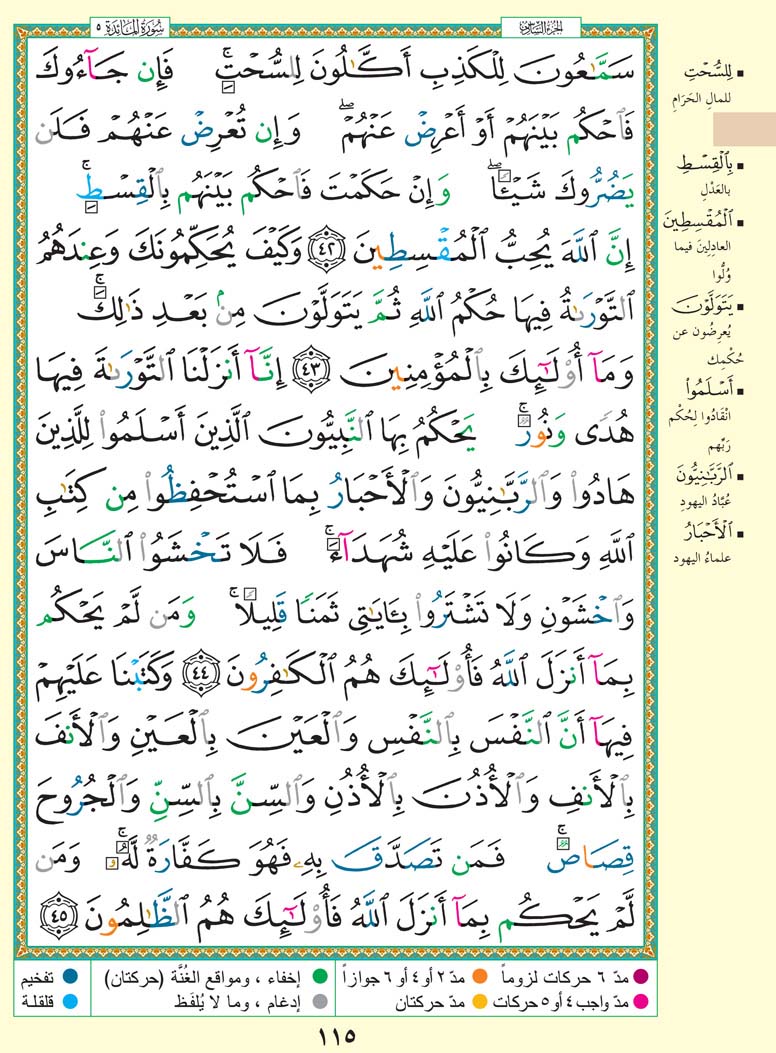 سُورَةُ المَائِدَة ٥
الجزء السادس
سَمَّٰعُونَ لِلْكَذِبِ أَكَّٰلُونَ لِلسُّحْتِ ۚ فَإِن جَآءُوكَ
فَٱحْكُم بَيْنَهُمْ أَوْ أَعْرِضْ عَنْهُمْ ۖ وَإِن تُعْرِضْ عَنْهُمْ فَلَن
يَضُرُّوكَ شَيْـًٔا ۖ وَإِنْ حَكَمْتَ فَٱحْكُم بَيْنَهُم بِٱلْقِسْطِ ۚ
إِنَّ ٱللَّهَ يُحِبُّ ٱلْمُقْسِطِينَ ٤٢ وَكَيْفَ يُحَكِّمُونَكَ وَعِندَهُمُ
ٱلتَّوْرَىٰةُ فِيهَا حُكْمُ ٱللَّهِ ثُمَّ يَتَوَلَّوْنَ مِنۢ بَعْدِ ذَٰلِكَ ۚ
وَمَآ أُو۟لَٰٓئِكَ بِٱلْمُؤْمِنِينَ ٤٣ إِنَّآ أَنزَلْنَا ٱلتَّوْرَىٰةَ فِيهَا
هُدًى وَنُورٌ ۚ يَحْكُمُ بِهَا ٱلنَّبِيُّونَ ٱلَّذِينَ أَسْلَمُوا۟ لِلَّذِينَ
هَادُوا۟ وَٱلرَّبَّٰنِيُّونَ وَٱلْأَحْبَارُ بِمَا ٱسْتُحْفِظُوا۟ مِن كِتَٰبِ
ٱللَّهِ وَكَانُوا۟ عَلَيْهِ شُهَدَآءَ ۚ فَلَا تَخْشَوُا۟ ٱلنَّاسَ
وَٱخْشَوْنِ وَلَا تَشْتَرُوا۟ بِـَٔايَٰتِى ثَمَنًا قَلِيلًا ۚ وَمَن لَّمْ يَحْكُم
بِمَآ أَنزَلَ ٱللَّهُ فَأُو۟لَٰٓئِكَ هُمُ ٱلْكَٰفِرُونَ ٤٤ وَكَتَبْنَا عَلَيْهِمْ
فِيهَآ أَنَّ ٱلنَّفْسَ بِٱلنَّفْسِ وَٱلْعَيْنَ بِٱلْعَيْنِ وَٱلْأَنفَ
بِٱلْأَنفِ وَٱلْأُذُنَ بِٱلْأُذُنِ وَٱلسِّنَّ بِٱلسِّنِّ وَٱلْجُرُوحَ
قِصَاصٌ ۚ فَمَن تَصَدَّقَ بِهِۦ فَهُوَ كَفَّارَةٌ لَّهُۥ ۚ وَمَن
لَّمْ يَحْكُم بِمَآ أَنزَلَ ٱللَّهُ فَأُو۟لَٰٓئِكَ هُمُ ٱلظَّٰلِمُونَ ٤٥
▪ لِلسُّحْتِ
للمالِ الحَرَامِ
▪ بِٱلْقِسْطِ
بالعَدْلِ
▪ ٱلْمُقْسِطِينَ
العادِلِينَ فيما
وُلُّوا
▪ يَتَوَلَّوْنَ
يُعرِضُون عن
حُكْمِك
▪ أَسْلَمُوا۟
انْقَادُوا لِحُكْم
رَبِّهم
▪ ٱلرَّبَّٰنِيُّونَ
عُبَّادُ اليهودِ
▪ ٱلْأَحْبَارُ
علماءُ اليهود
مدّ ٦ حركات لزوماً
مدّ ٢ أو ٤ أو ٦ جوازاً
إخفاء ، ومواقع الغُنَّة (حركتان)
تفخيم
مدّ واجب ٤ أو ٥ حركات
مدّ حركتان
إدغام ، وما لا يُلفَظ
قلقلة
١١٥